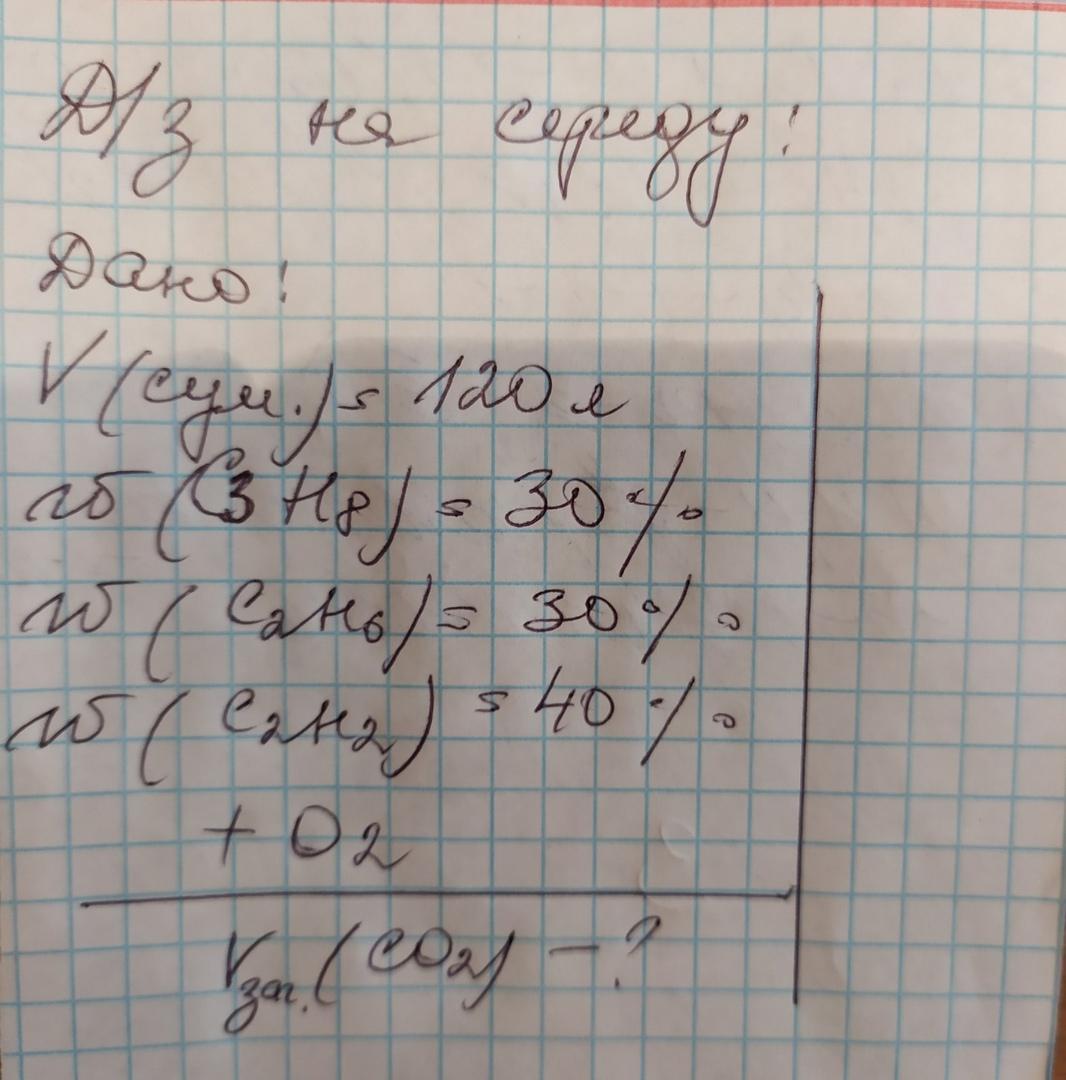 Д/з на середу:
Дано:
V (сум.) = 120 л
w (C3H8) = 30%
w (C2H6) = 30%
w (C2H2) = 40%
+ O2
Vзаг. (CO2) - ?